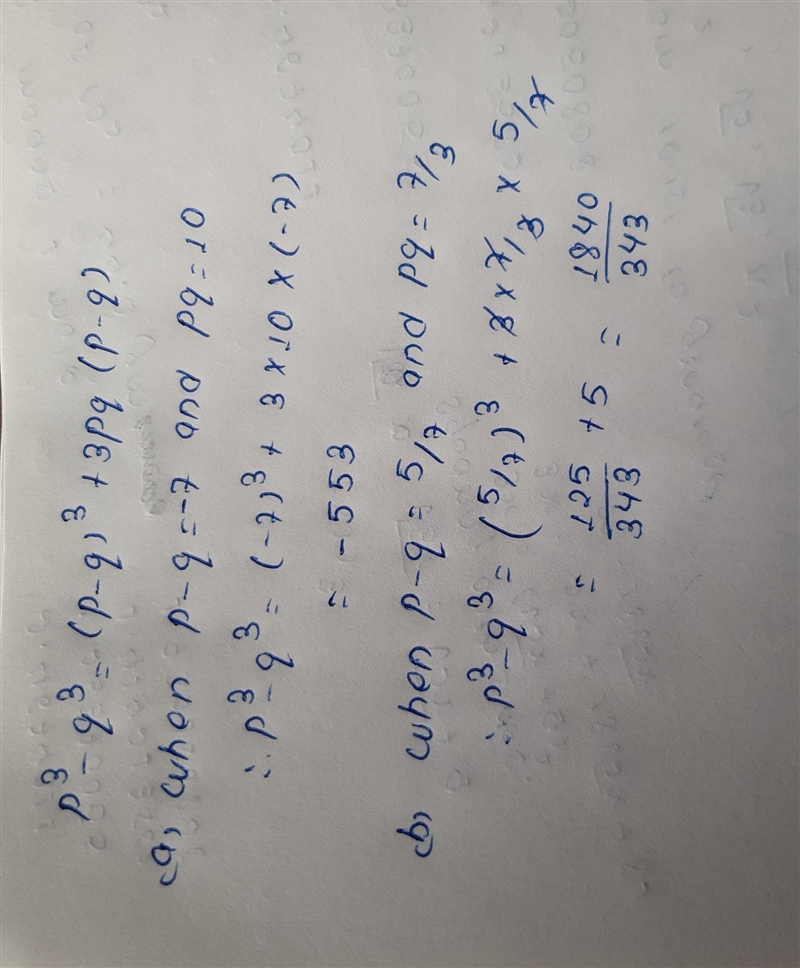 p³ - q³ = (p-q)³ + 3pq (p-q)
(a) when p-q = -7 and pq = 10
∴ p³ - q³ = (-7)³ + 3 × 10 × (-7)
= -553
(b) when p-q = 5/7 and pq = 7/3
∴ p³ - q³ = (5/7)³ + 3 × 7/3 × 5/7
= 125/343 + 5 = 1840/343